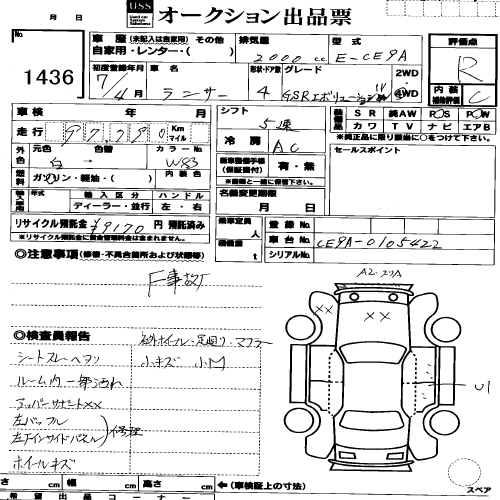 月 日
USS オークション出品票
No. 1436
車歴 (未記入は自家用) その他
自家用・レンター・( )
排気量 2000 cc
型式 E-CE9A
評価点 R
初度登録年月 7/4月
車名 ランサー
形状・ドア数 4
グレード GSRエボリューション
2WD・4WD
内装 C
車検 年 月
シフト 5速
装備 SR 純AW PS PW
カワ TV ナビ エアB
走行 97,790 Km マイル
外色 元色 白 色替 カラーNo. W83
冷房 AC
セールスポイント
燃料 ガソリン・軽油・( ) 内装色
有・無
年式 輸入区分 ハンドル
ディーラー・並行 左・右
名義変更期限 月 日
リサイクル預託金 ¥9170 円 預託済み
※リサイクル預託金に資金管理料金は含まれません。
乗車定員 人
登録No.
車台No. CE9A-0105422
シリアルNo.
◎注意事項 (修復・不具合箇所および状態等)
F事故
◎検査員報告
社外ホイール・足廻り・マフラー
シートスレ・ヘタリ 小キズ 小凹
ルーム内一部汚れ
アッパーサポートXX
左バッフル
左Fインサイドパネル 修理
ホイールキズ
XX
XX
U1
スペア
cm 幅 cm 高さ cm ◀(車検証上の寸法)
希望出品コーナー